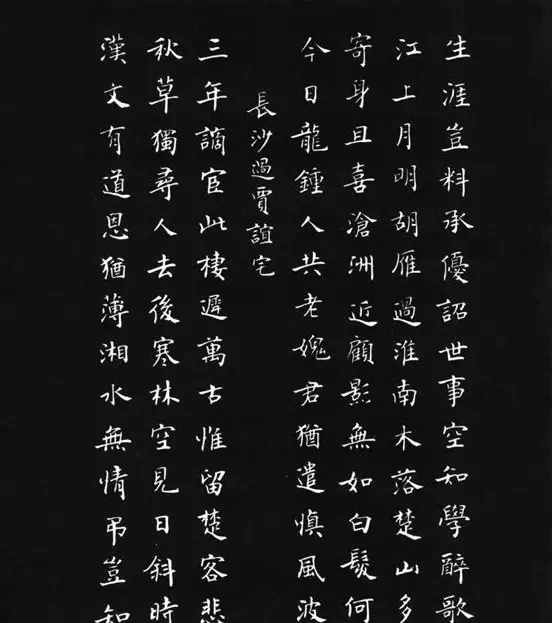 生涯豈料承優詔世事空知學醉歌
江上月明胡雁過淮南木落楚山多
寄身且喜滄洲近顧影無如白髮何
今日龍鍾人共老媿君猶遣慎風波
長沙過賈誼宅
三年謫官此棲遲萬古惟留楚客悲
秋草獨尋人去後寒林空見日斜時
漢文有道恩猶薄湘水無情弔豈知